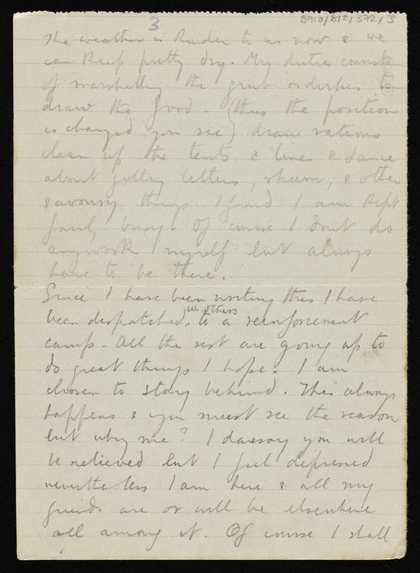 3
The weather is kinder to us now & we
can keep pretty dry. My duties consist
of marshalling the grub orderlies to
draw the food - (thus the position
is changed you see) draw rations
clean up the tents & lines & dance
about getting letters, rhum, & other
savoury things. I find I am kept
fairly busy. Of course I don't do
any work myself but always
have to be there.
Since I have been writing this I have
been despatched, with others to a reinforcement
camp - All the rest are going up to
do great things I hope. I am
chosen to stay behind. This always
happens & you must see the reason
but why me? I daresay you will
be relieved but I feel depressed
nevertheless I am here & all my
friends are or will be elsewhere
all among it. Of course I shall